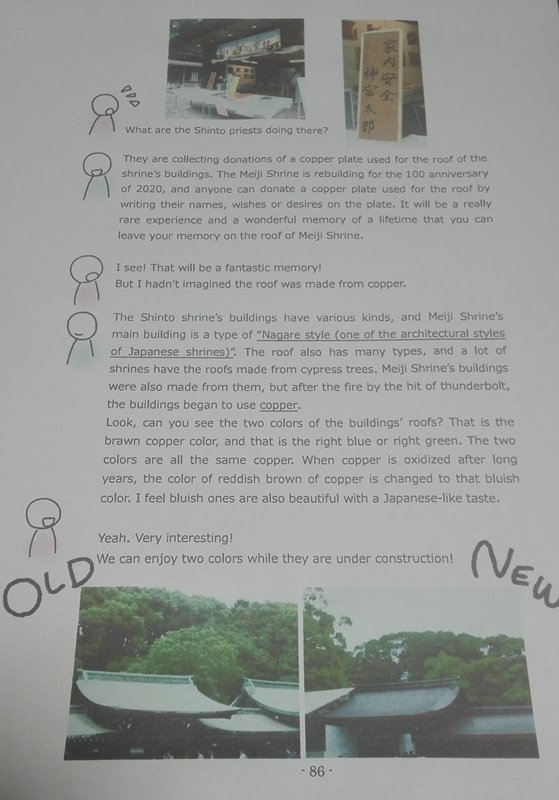 家内安全
神宮太郎
What are the Shinto priests doing there?
They are collecting donations of a copper plate used for the roof of the
shrine's buildings. The Meiji Shrine is rebuilding for the 100 anniversary
of 2020, and anyone can donate a copper plate used for the roof by
writing their names, wishes or desires on the plate. It will be a really
rare experience and a wonderful memory of a lifetime that you can
leave your memory on the roof of Meiji Shrine.
I see! That will be a fantastic memory!
But I hadn't imagined the roof was made from copper.
The Shinto shrine's buildings have various kinds, and Meiji Shrine's
main building is a type of “Nagare style (one of the architectural styles
of Japanese shrines)”. The roof also has many types, and a lot of
shrines have the roofs made from cypress trees. Meiji Shrine's buildings
were also made from them, but after the fire by the hit of thunderbolt,
the buildings began to use copper.
Look, can you see the two colors of the buildings' roofs? That is the
brawn copper color, and that is the right blue or right green. The two
colors are all the same copper. When copper is oxidized after long
years, the color of reddish brown of copper is changed to that bluish
color. I feel bluish ones are also beautiful with a Japanese-like taste.
Yeah. Very interesting!
We can enjoy two colors while they are under construction!
OLD
NEW
- 86 -